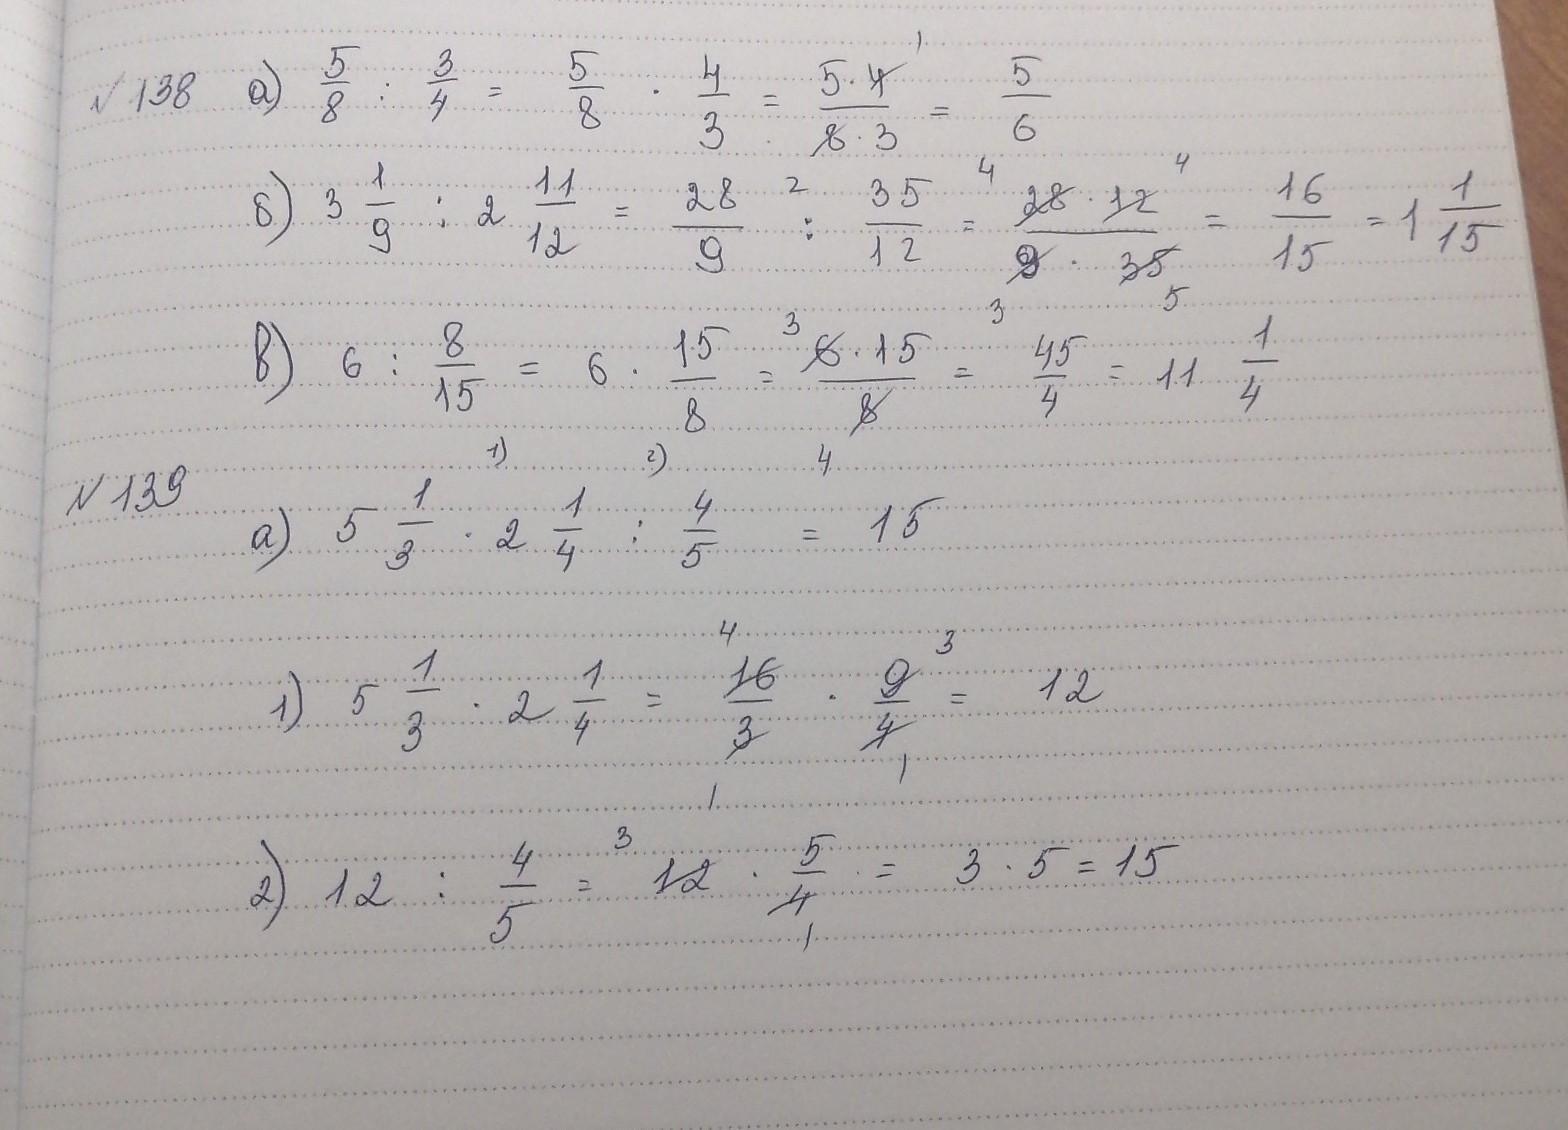 №138 а) 5/8 : 3/4 = 5/8 · 4/3 = 5·4/8·3 = 5/6
б) 3 1/9 : 2 11/12 = 28/9 : 35/12 = 28·12/9·35 = 16/15 = 1 1/15
в) 6 : 8/15 = 6 · 15/8 = 6·15/8 = 45/4 = 11 1/4
№139 а) 5 1/3 · 2 1/4 : 4/5 = 15
1) 5 1/3 · 2 1/4 = 16/3 · 9/4 = 12
2) 12 : 4/5 = 12 · 5/4 = 3 · 5 = 15